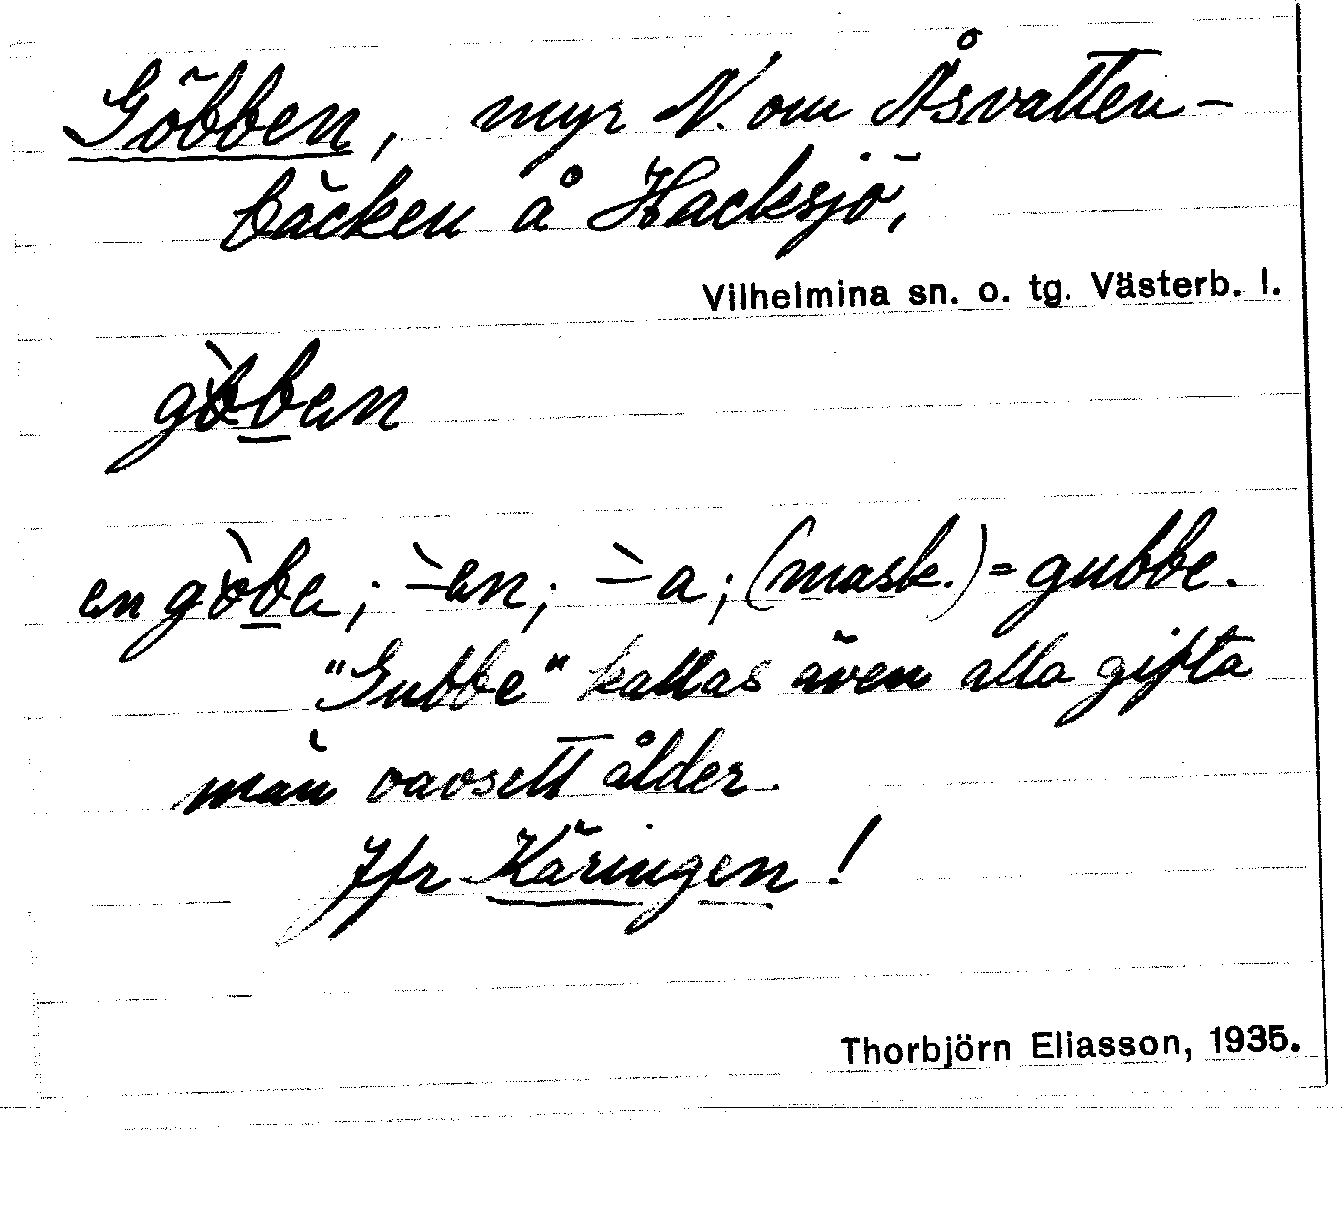 Göbben, myr N. om Åsvatten-
bäcken å Hacksjö,
Vilhelmina sn. o. tg. Västerb. l.
gòben
en gòbe; -̀en; -̀a; (mask.) = gubbe.
"Gubbe" kallas även alla gifta
män oavsett ålder.
Jfr Käringen!
Thorbjörn Eliasson, 1935.